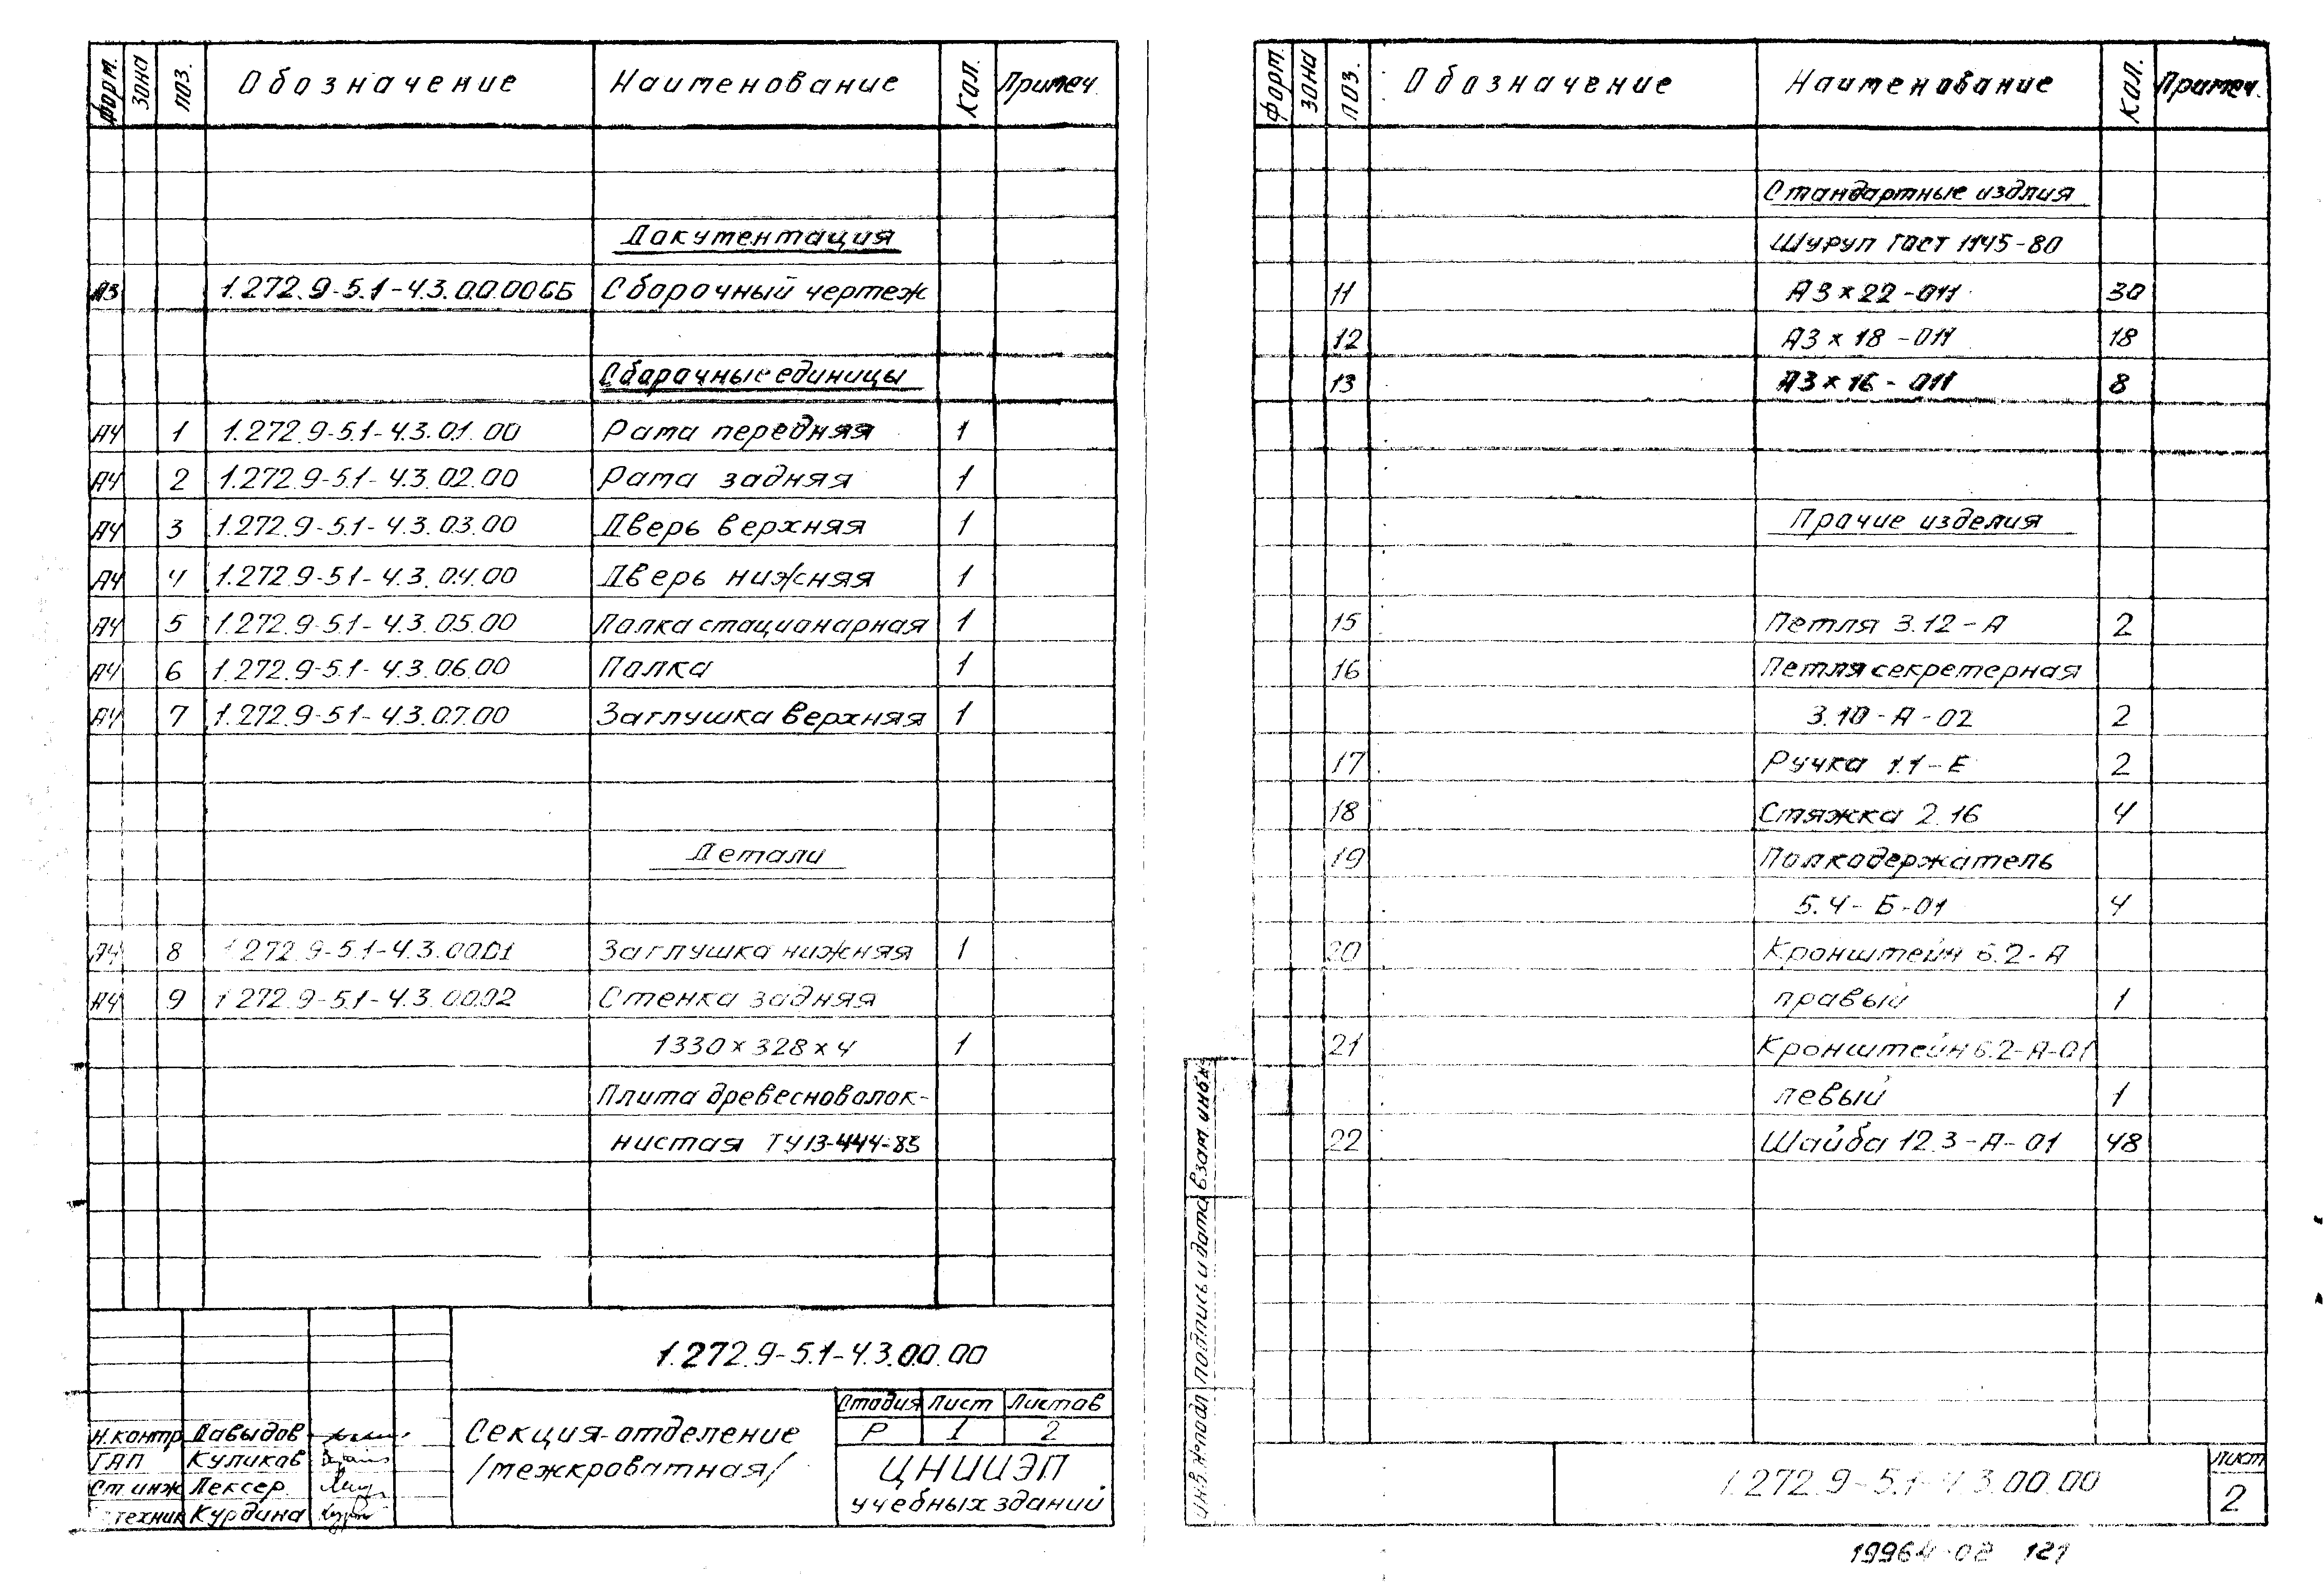 Форм. Зона Поз. Обозначение Наименование Кол. Примеч.
Документация
А3 1.272.9-5.1-4.3.00.00СБ Сборочный чертеж
Сборочные единицы
А4 1 1.272.9-5.1-4.3.01.00 Рама передняя 1
А4 2 1.272.9-5.1-4.3.02.00 Рама задняя 1
А4 3 1.272.9-5.1-4.3.03.00 Дверь верхняя 1
А4 4 1.272.9-5.1-4.3.04.00 Дверь нижняя 1
А4 5 1.272.9-5.1-4.3.05.00 Полка стационарная 1
А4 6 1.272.9-5.1-4.3.06.00 Полка 1
А4 7 1.272.9-5.1-4.3.07.00 Заглушка верхняя 1
Детали
А4 8 1.272.9-5.1-4.3.00.01 Заглушка нижняя 1
А4 9 1.272.9-5.1-4.3.00.02 Стенка задняя
1330×328×4 1
Плита древесноволок-
нистая ТУ13-444-83
1.272.9-5.1-4.3.00.00
Стадия Лист Листов
Р 1 2
Секция-отделение
/межкроватная/
ЦНИИЭП
учебных зданий
Н.контр Давыдов
ГАП Куликов
Ст.инж Лексер
техник Курдина
Форм. Зона Поз. Обозначение Наименование Кол. Примеч.
Стандартные изделия
Шуруп ГОСТ 1145-80
11 А3×22-011 30
12 А3×18-011 18
13 А3×16-011 8
Прочие изделия
15 Петля 3.12-А 2
16 Петля секретерная
3.10-А-02 2
17 Ручка 1.1-Е 2
18 Стяжка 2.16 4
19 Полкодержатель
5.4-Б-01 4
20 Кронштейн 6.2-А
правый 1
21 Кронштейн 6.2-А-01
левый 1
22 Шайба 12.3-А-01 48
Инв.№подл Подпись и дата Взам.инв.№
1.272.9-5.1-4.3.00.00
Лист
2
19964-02 121